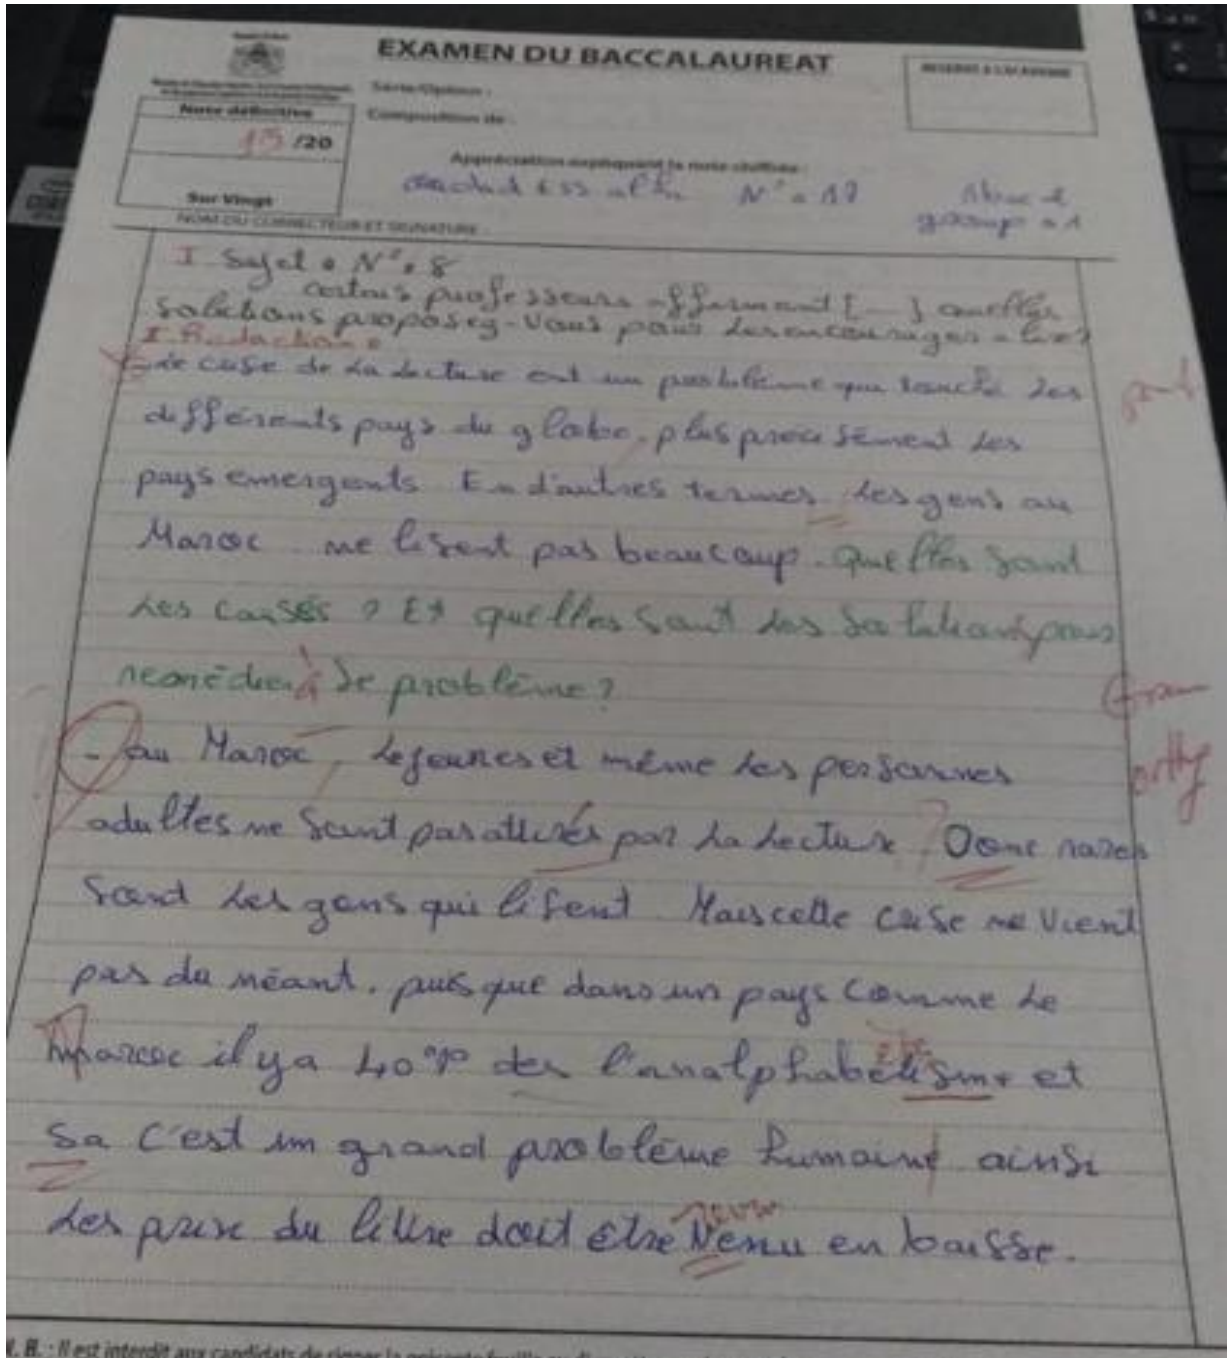 EXAMEN DU BACCALAUREAT
RESERVE A L'ACADEMIE
Série/Option :
Composition de :
Note définitive
/20
Appréciation expliquant la note chiffrée :
N° = 17
group = 1
Sur Vingt
NOM DU CORRECTEUR ET SIGNATURE :
I Sujet : N° : 8
professeurs affirment [...] quelles
solutions proposez-vous pour les encourager a lire?
I. Rédaction :
Le cuse de la lecture ent un problème que touche les
différents pays du globe, plus précisément les
pays emergents. En d'autres termes, les gens au
Maroc ne lisent pas beaucoup. Quelles sont
les causes ? Et quelles sont les solutions pour
remédier à se problème ?
- au Maroc, le jeunes et même les personnes
adultes ne sont pas attirés par la lecture. Donc rares
sont les gens qui lisent Mais cette cuse ne vient
pas du néant, puisque dans un pays comme le
Maroc il y a 40% des l'analphabétisme et
sa c'est un grand problème humaine ainsi
les prix du livre doit être Venu en baisse.
gram
orthg
N. B. : Il est interdit aux candidats de signer